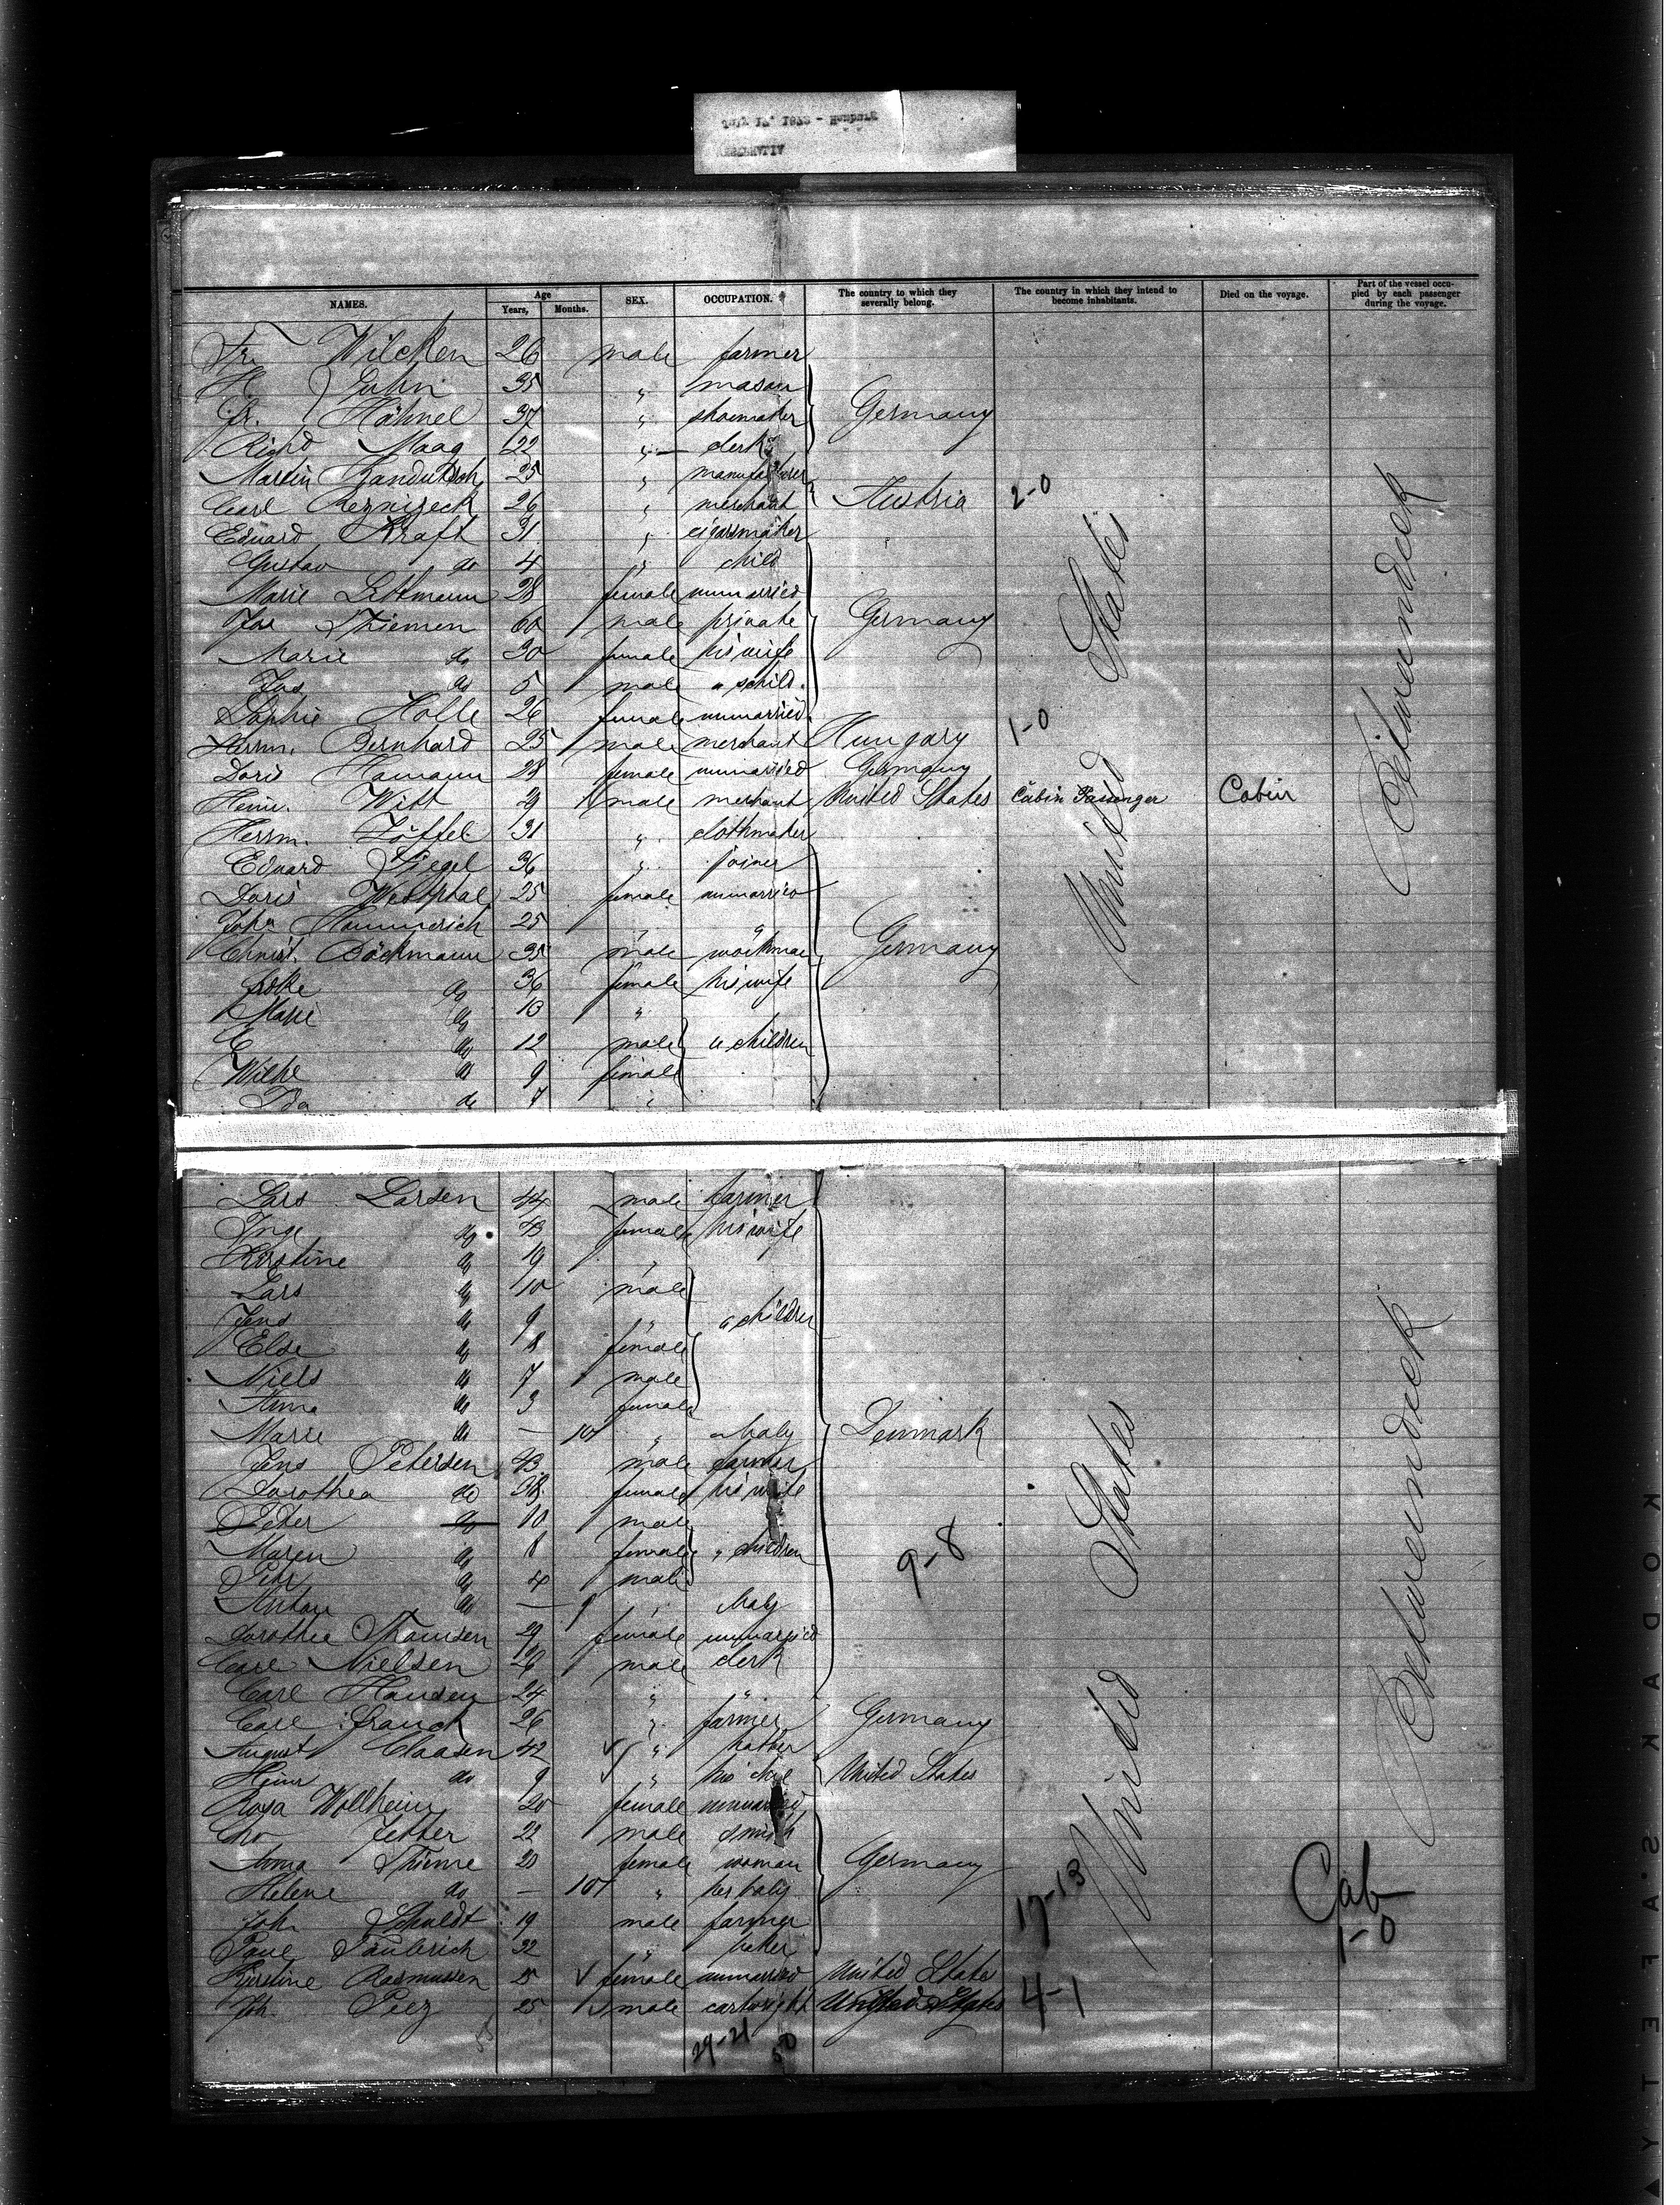 NAMES. Age Years, Months. SEX. OCCUPATION. The country to which they severally belong. The country in which they intend to become inhabitants. Died on the voyage. Part of the vessel occupied by each passenger during the voyage.
Fr. Wilcken 26 male farmer
H. Jahn 35 " mason
Fr. Hähnel 37 " shoemaker Germany
Richd Maag 22 " clerk
Martin 25 " manufacturer
Carl Reznizeck 26 " merchant Austria 2-0
Eduard Kraft 31 " cigarsmaker
Gustav do 4 " child
Marie Lettmann 28 female unmarried
Jos Thiemen 60 male private Germany
Marie do 30 female his wife
Jos do 5 male " child
Sophie Holle 26 female unmarried
Herrm. Bernhard 25 male merchant Hungary 1-0
Doris Hamann 28 female unmarried Germany
Heinr. Witt 29 male merchant United States Cabin Passenger Cabin
Herrm. Löffel 31 " clothmaker
Eduard Siegel 36 " joiner
Doris Westphal 25 female unmarried
Joha Hammerich 25 " "
Christ. Böckmann 35 male workman Germany
do 36 female his wife
Marie do 13 "
C do 12 male " children
Wilhe do 9 female
Ida do 7 "
United States
Zwischendeck
Lars Larsen 44 male farmer
Inge do 43 female his wife
Kirstine do 19 "
Lars do 10 male
Jens do 9 " " children
Else do 8 female
Niels do 7 male
Anna do 3 female
Marie do — 10 " baby Denmark
Jens Petersen 43 male farmer
Dorothea do 38 female his wife
Peter do 10 male
Maren do 8 female " children
Peter do 4 male
Anton do — 9 " baby
9-8
Dorothie Thomsen 29 female unmarried
Carl Nielsen 26 male clerk
Carl Hansen 24 " "
Carl Franck 26 " farmer Germany
August Claasen 42 " hatter
Heinr do 9 " his child United States
Rosa Wollheim 20 female unmarried
Chr Jetter 22 male smith
Anna Thieme 20 female woman Germany
Helene do — 10 " her baby
Joh. Schuldt 19 male farmer 17-13
Paul Paulerich 32 " baker
Kirstine Rasmussen 25 female unmarried United States
Joh. Peez 25 male cartwright United States 4-1
United States
Zwischendeck
Cab
1-0
29-21 50
KODAK SAFETY